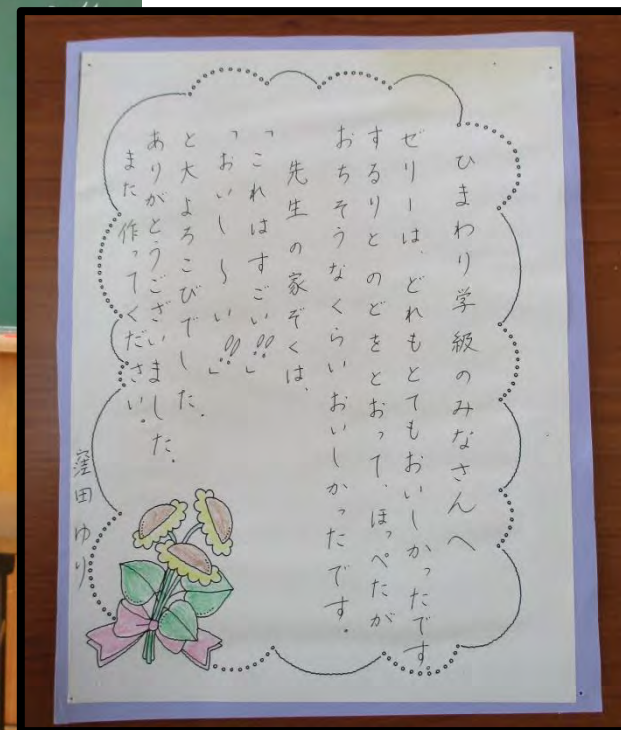 ひまわり学級のみなさんへ
ゼリーは、どれもとてもおいしかったです。
するりとのどをとおって、ほっぺたが
おちそうなくらいおいしかったです。
先生の家ぞくは、
「これはすごい!!」
「おいし〜い!!」
と大よろこびでした。
ありがとうございました。
また作ってください。
窪田ゆり